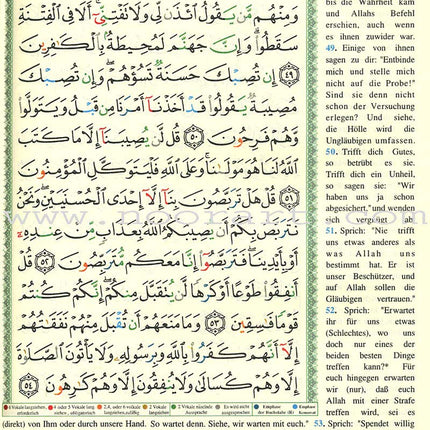 وَمِنْهُم مَّن يَقُولُ ٱئْذَن لِّى وَلَا تَفْتِنِّىٓ أَلَا فِى ٱلْفِتْنَةِ
سَقَطُوا۟ وَإِنَّ جَهَنَّمَ لَمُحِيطَةٌۢ بِٱلْكَٰفِرِينَ
٤٩ إِن تُصِبْكَ حَسَنَةٌ تَسُؤْهُمْ وَإِن تُصِبْكَ
مُصِيبَةٌ يَقُولُوا۟ قَدْ أَخَذْنَآ أَمْرَنَا مِن قَبْلُ وَيَتَوَلَّوا۟
وَّهُمْ فَرِحُونَ ٥٠ قُل لَّن يُصِيبَنَآ إِلَّا مَا كَتَبَ
ٱللَّهُ لَنَا هُوَ مَوْلَىٰنَا وَعَلَى ٱللَّهِ فَلْيَتَوَكَّلِ ٱلْمُؤْمِنُونَ
٥١ قُلْ هَلْ تَرَبَّصُونَ بِنَآ إِلَّآ إِحْدَى ٱلْحُسْنَيَيْنِ وَنَحْنُ
نَتَرَبَّصُ بِكُمْ أَن يُصِيبَكُمُ ٱللَّهُ بِعَذَابٍ مِّنْ عِندِهِۦٓ
أَوْ بِأَيْدِينَا فَتَرَبَّصُوٓا۟ إِنَّا مَعَكُم مُّتَرَبِّصُونَ ٥٢ قُلْ
أَنفِقُوا۟ طَوْعًا أَوْ كَرْهًا لَّن يُتَقَبَّلَ مِنكُمْ إِنَّكُمْ كُنتُمْ
قَوْمًا فَٰسِقِينَ ٥٣ وَمَا مَنَعَهُمْ أَن تُقْبَلَ مِنْهُمْ نَفَقَٰتُهُمْ
إِلَّآ أَنَّهُمْ كَفَرُوا۟ بِٱللَّهِ وَبِرَسُولِهِۦ وَلَا يَأْتُونَ ٱلصَّلَوٰةَ
إِلَّا وَهُمْ كُسَالَىٰ وَلَا يُنفِقُونَ إِلَّا وَهُمْ كَٰرِهُونَ ٥٤
bis die Wahrheit kam
und Allahs Befehl
erschien, auch wenn
es ihnen zuwider war.
49. Einige von ihnen
sagen zu dir: "Entbinde
mich und stelle mich
nicht auf die Probe!"
Sind sie denn nicht
schon der Versuchung
erlegen? Und siehe,
die Hölle wird die
Ungläubigen umfassen.
50. Trifft dich Gutes,
so betrübt es sie.
Trifft dich ein Unheil,
so sagen sie: "Wir
haben uns ja schon
abgesichert," und wenden
sich vergnügt ab.
51. Sprich: "Nie trifft
uns etwas anderes als
was Allah uns
bestimmt hat. Er ist
unser Beschützer, und
auf Allah sollen die
Gläubigen vertrauen."
52. Sprich: "Erwartet
ihr für uns etwas
(Schlechtes), wo uns
doch nur eines der
beiden besten Dinge
treffen kann?* Für
euch hingegen erwarten
wir (nur), daß euch
Allah mit einer Strafe
treffen wird, sei es
(direkt) von Ihm oder durch unsere Hand. So wartet denn. Siehe, wir warten mit euch." 53. Sprich: "Spendet willig